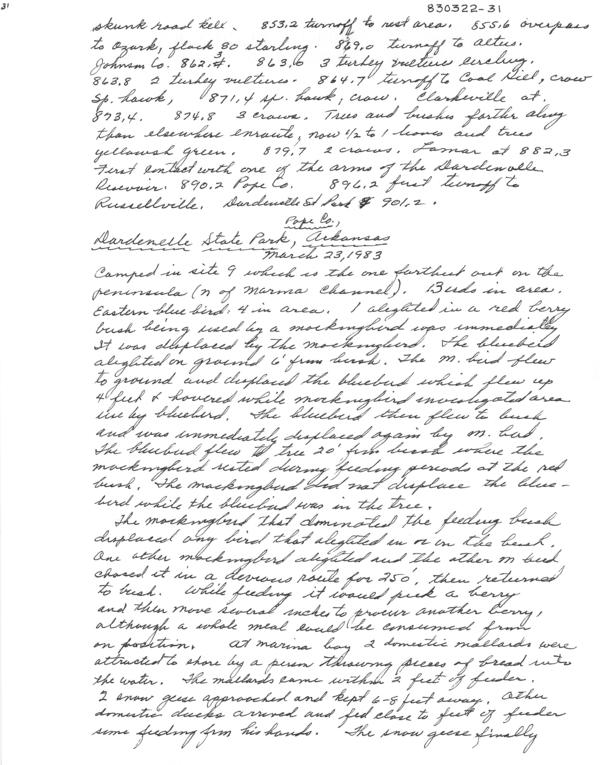 31
830322-31
skunk road kill. 853.2 turnoff to rest area. 855.6 overpass
to Ozark, flock 80 starling. 869.0 turnoff to Altus.
Johnson Co. 862.4. 863.6 3 turkey vulture circling.
863.8 2 turkey vultures. 864.7 turnoff to Coal Hill, crow
Sp. hawk, 871.4 sp. hawk, crow. Clarksville at
873.4. 874.8 3 crows. Trees and bushes farther along
than elsewhere enroute, now 1/2 to 1 leaves and trees
yellowish green. 879.7 2 crows. Lamar at 882.3
First contact with one of the arms of the Dardenelle
Resevoir. 890.2 Pope Co. 896.2 first turnoff to
Russellville. Dardenelle St Park 901.2.
Pope Co.,
Dardenelle State Park, Arkansas
March 23, 1983
Camped in site 9 which is the one farthest out on the
peninsula (n of Marina Channel). Birds in area.
Eastern blue bird: 4 in area. 1 alighted in a red berry
bush being used by a mockingbird was immediatley
It was displaced by the mockingbird. The bluebird
alighted on ground 6' from bush. The m. bird flew
to ground and displaced the bluebird which flew up
4 feet & hovered while mockingbird investigated area
use by bluebird. The bluebird then flew to bush
and was immediately displaced again by m. bird.
The bluebird flew to tree 20' from bush where the
mockingbird rested during feeding periods at the red
bush. The mockingbird did not displace the blue-
bird while the bluebird was in the tree.
The mockingbird that dominated the feeding bush
displaced any bird that alighted in or on the bush.
One other mockingbird alighted and the other m bird
chased it in a devious route for 250', then returned
to bush. While feeding it would pick a berry
and then move several inches to procur another berry,
although a whole meal could be consumed from
on position. At marina bay 2 domestic mallards were
attracted to shore by a person throwing pieces of bread into
the water. The mallards came within 2 feet of feeder.
2 snow geese approached and kept 6-8 feet away. Other
domestic ducks arrived and fed close to feet of feeder
some feeding from his hands. The snow geese finally